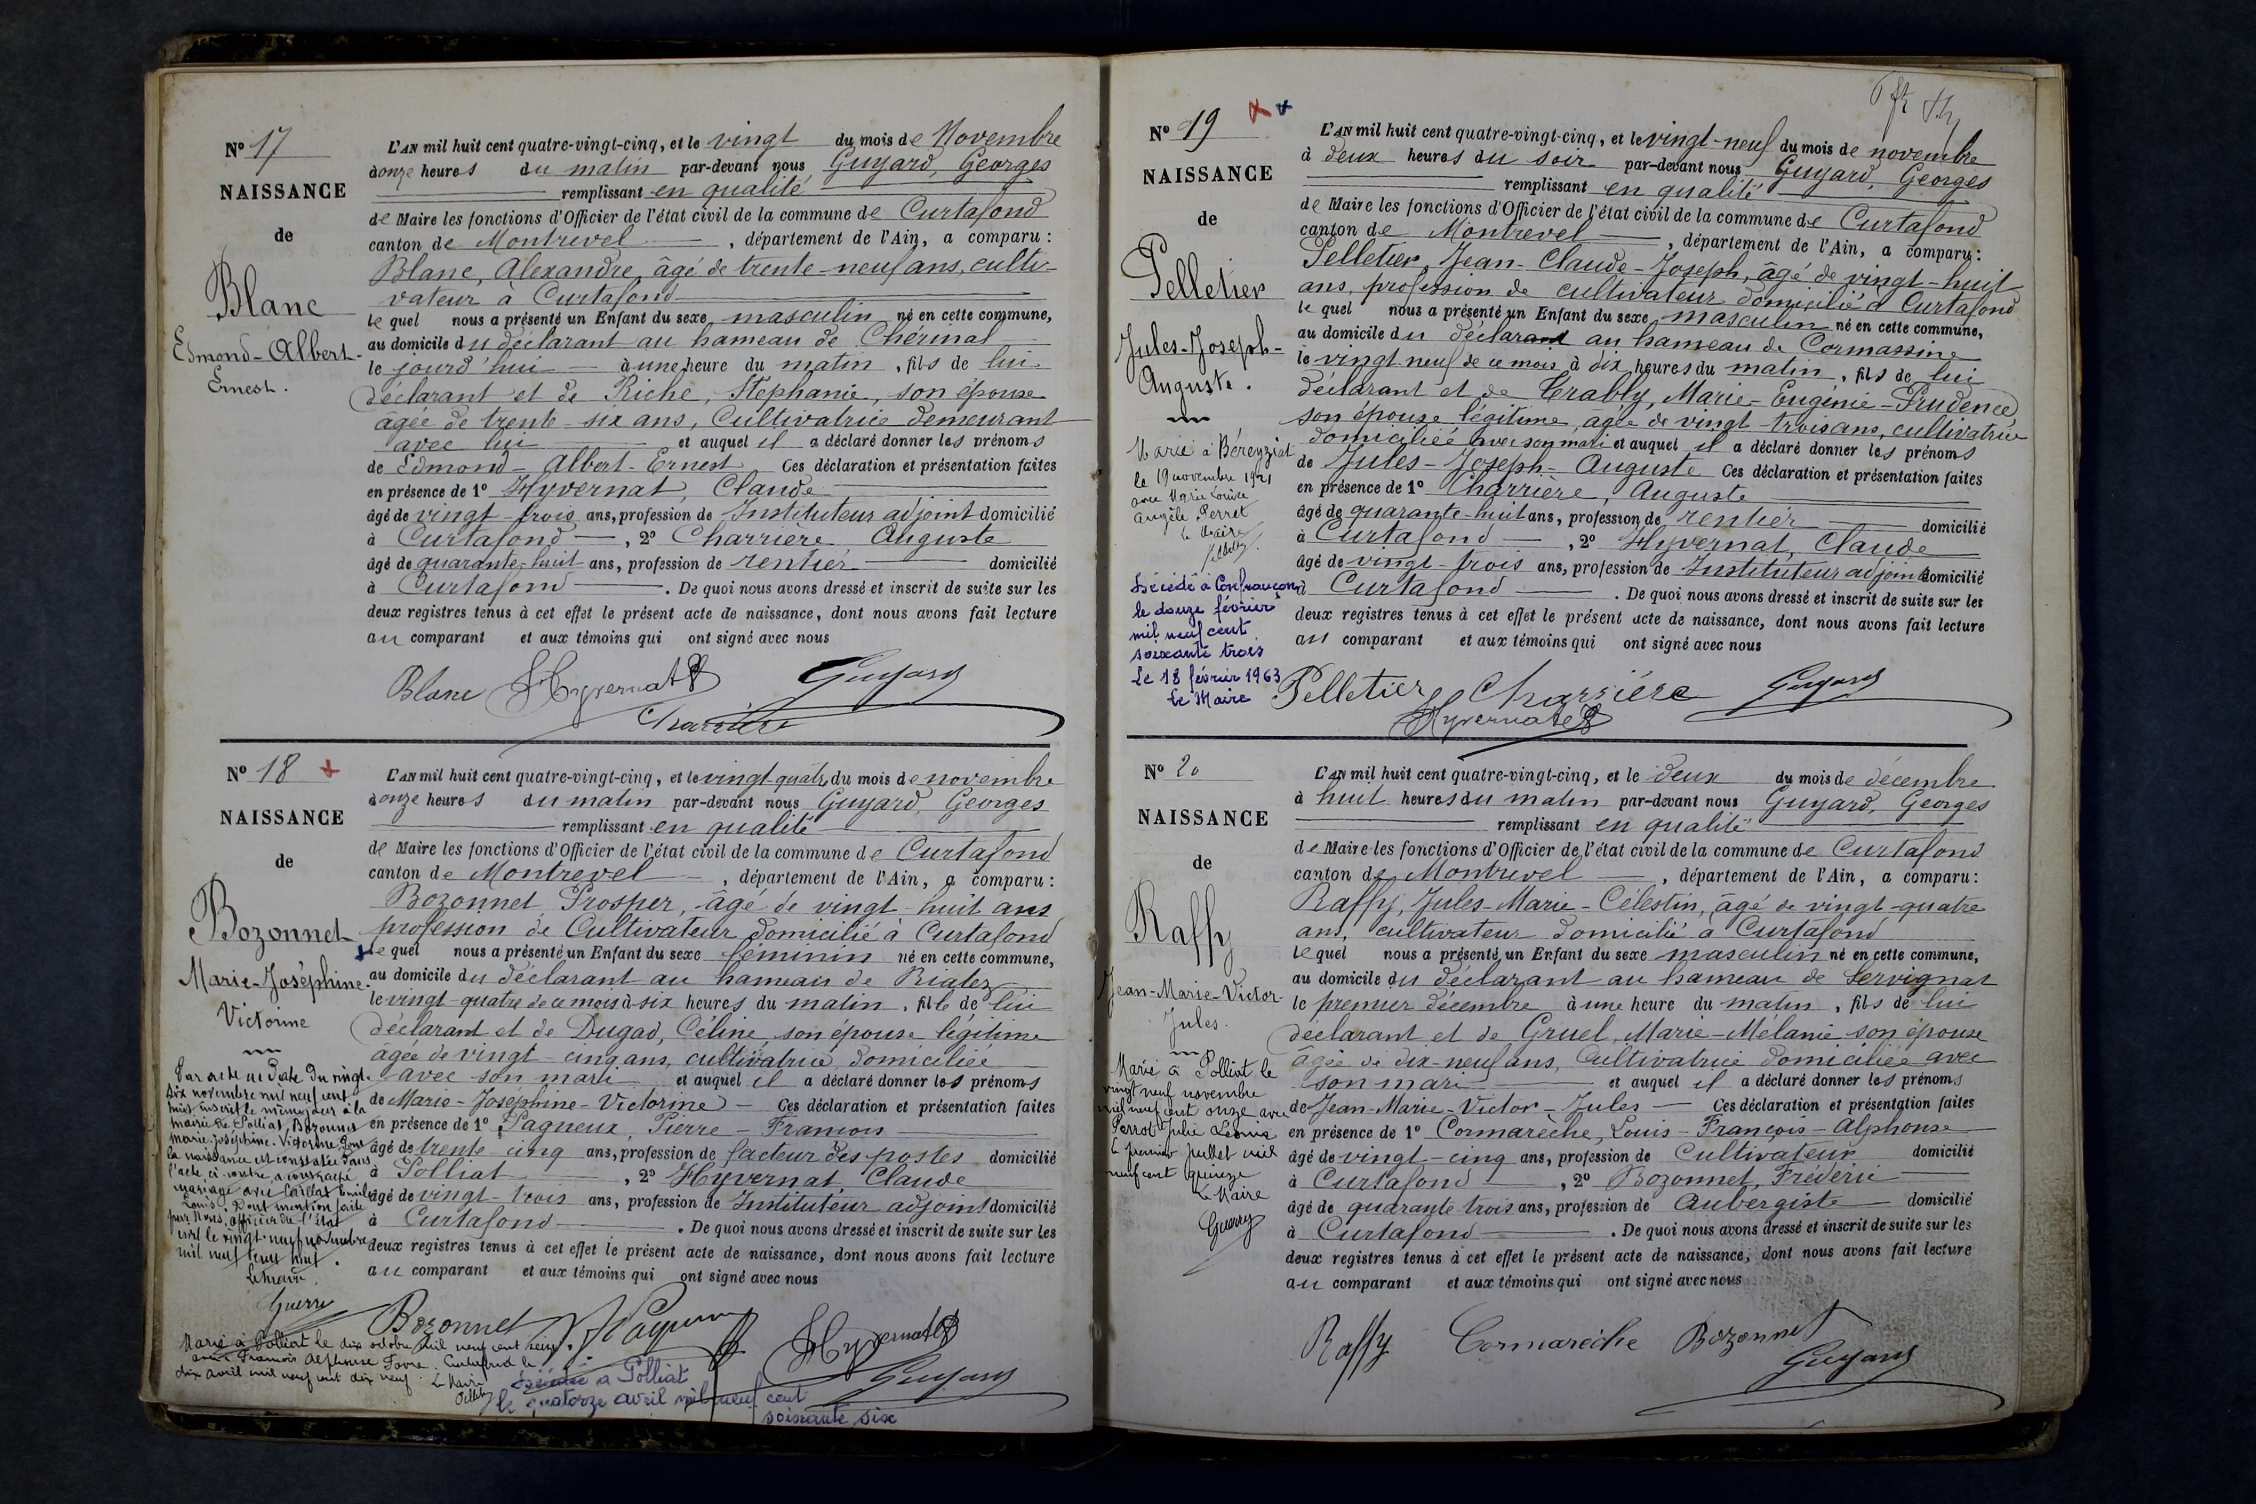 N° 17
NAISSANCE
de
Blanc
Edmond-Albert-
Ernest.
L'AN mil huit cent quatre-vingt-cinq, et le vingt du mois de Novembre
à onze heures du matin par-devant nous Guyard, Georges
remplissant en qualité
de Maire les fonctions d'Officier de l'état civil de la commune de Curtafond
canton de Montrevel, département de l'Ain, a comparu :
Blanc, Alexandre, âgé de trente-neuf ans, culti-
vateur à Curtafond
lequel nous a présenté un Enfant du sexe masculin né en cette commune,
au domicile du déclarant au hameau de Chérinal
le jourd'hui à une heure du matin, fils de lui
déclarant et de Riche, Stéphanie, son épouse
âgée de trente-six ans, Cultivatrice demeurant
avec lui et auquel il a déclaré donner les prénoms
de Edmond-Albert-Ernest Ces déclaration et présentation faites
en présence de 1° Hyvernat, Claude
âgé de vingt-trois ans, profession de Instituteur adjoint domicilié
à Curtafond, 2° Charrière Auguste
âgé de quarante-huit ans, profession de rentier domicilié
à Curtafond. De quoi nous avons dressé et inscrit de suite sur les
deux registres tenus à cet effet le présent acte de naissance, dont nous avons fait lecture
au comparant et aux témoins qui ont signé avec nous
Blanc Hyvernat Guyard
Charrière
N° 18
NAISSANCE
de
Bozonnet
Marie-Joséphine-
Victorine
Par acte en date du vingt-
six novembre mil neuf cent
huit inscrit le même jour à la
mairie de Polliat, Bozonnet
Marie-Joséphine-Victorine, dont
la naissance est constatée dans
l'acte ci-contre, a contracté
mariage avec Emile
Louis. Dont mention faite
par Nous, officier de l'état
civil le vingt-neuf novembre
mil neuf cent huit.
Le Maire
L'AN mil huit cent quatre-vingt-cinq, et le vingt quatre du mois de novembre
à onze heures du matin par-devant nous Guyard, Georges
remplissant en qualité
de Maire les fonctions d'Officier de l'état civil de la commune de Curtafond
canton de Montrevel, département de l'Ain, a comparu :
Bozonnet, Prosper, âgé de vingt-huit ans
profession de Cultivateur domicilié à Curtafond
lequel nous a présenté un Enfant du sexe féminin né en cette commune,
au domicile du déclarant au hameau de Biolez
le vingt-quatre de ce mois à six heures du matin, fille de lui
déclarant et de Dugad, Céline, son épouse légitime
âgée de vingt-cinq ans, cultivatrice domiciliée
avec son mari et auquel il a déclaré donner les prénoms
de Marie-Joséphine-Victorine Ces déclaration et présentation faites
en présence de 1° Pagneux, Pierre-François
âgé de trente cinq ans, profession de facteur des postes domicilié
à Polliat, 2° Hyvernat, Claude
âgé de vingt-trois ans, profession de Instituteur adjoint domicilié
à Curtafond. De quoi nous avons dressé et inscrit de suite sur les
deux registres tenus à cet effet le présent acte de naissance, dont nous avons fait lecture
au comparant et aux témoins qui ont signé avec nous
Bozonnet Hyvernat
Guyard
Marié à Polliat le dix octobre mil neuf cent
avec François Alphonse Favre. Curtafond le
dix avril mil neuf cent dix neuf. Le Maire
Décédée à Polliat
le quatorze avril mil neuf cent
soixante six
N° 19
NAISSANCE
de
Pelletier
Jules-Joseph-
Auguste.
Marié à Béreyziat
le 19 novembre 1921
avec Marie Louise
Angèle Perret
Le Maire
Décédé à Confrançon
le douze février
mil neuf cent
soixante trois
Le 18 février 1963
Le Maire
L'AN mil huit cent quatre-vingt-cinq, et le vingt-neuf du mois de novembre
à deux heures du soir par-devant nous Guyard, Georges
remplissant en qualité
de Maire les fonctions d'Officier de l'état civil de la commune de Curtafond
canton de Montrevel, département de l'Ain, a comparu :
Pelletier, Jean-Claude-Joseph, âgé de vingt-huit
ans, profession de cultivateur domicilié à Curtafond
lequel nous a présenté un Enfant du sexe masculin né en cette commune,
au domicile du déclarant au hameau de Cormassine
le vingt-neuf de ce mois à dix heures du matin, fils de lui
déclarant et de Crably, Marie-Eugénie-Prudence
son épouse légitime, âgée de vingt-trois ans, cultivatrice
domiciliée avec son mari et auquel il a déclaré donner les prénoms
de Jules-Joseph-Auguste Ces déclaration et présentation faites
en présence de 1° Charrière, Auguste
âgé de quarante-huit ans, profession de rentier domicilié
à Curtafond, 2° Hyvernat, Claude
âgé de vingt-trois ans, profession de Instituteur adjoint domicilié
à Curtafond. De quoi nous avons dressé et inscrit de suite sur les
deux registres tenus à cet effet le présent acte de naissance, dont nous avons fait lecture
au comparant et aux témoins qui ont signé avec nous
Pelletier Charrière Guyard
Hyvernat
N° 20
NAISSANCE
de
Raffy
Jean-Marie-Victor-
Jules.
Marié à Polliat le
vingt neuf novembre
mil neuf cent onze avec
Perrot Julie Léonie
le premier Juillet mil
neuf cent quinze
Le Maire
Guerry
L'AN mil huit cent quatre-vingt-cinq, et le deux du mois de décembre
à huit heures du matin par-devant nous Guyard, Georges
remplissant en qualité
de Maire les fonctions d'Officier de l'état civil de la commune de Curtafond
canton de Montrevel, département de l'Ain, a comparu :
Raffy, Jules-Marie-Célestin, âgé de vingt-quatre
ans, cultivateur domicilié à Curtafond
lequel nous a présenté un Enfant du sexe masculin né en cette commune,
au domicile du déclarant au hameau de Servignat
le premier décembre à une heure du matin, fils de lui
déclarant et de Gruel, Marie-Mélanie son épouse
âgée de dix-neuf ans, Cultivatrice domiciliée avec
son mari et auquel il a déclaré donner les prénoms
de Jean-Marie-Victor-Jules Ces déclaration et présentation faites
en présence de 1° Cormarèche, Louis-François-Alphonse
âgé de vingt-cinq ans, profession de Cultivateur domicilié
à Curtafond, 2° Bozonnet, Frédéric
âgé de quarante trois ans, profession de Aubergiste domicilié
à Curtafond. De quoi nous avons dressé et inscrit de suite sur les
deux registres tenus à cet effet le présent acte de naissance, dont nous avons fait lecture
au comparant et aux témoins qui ont signé avec nous
Raffy Cormarèche Bozonnet
Guyard